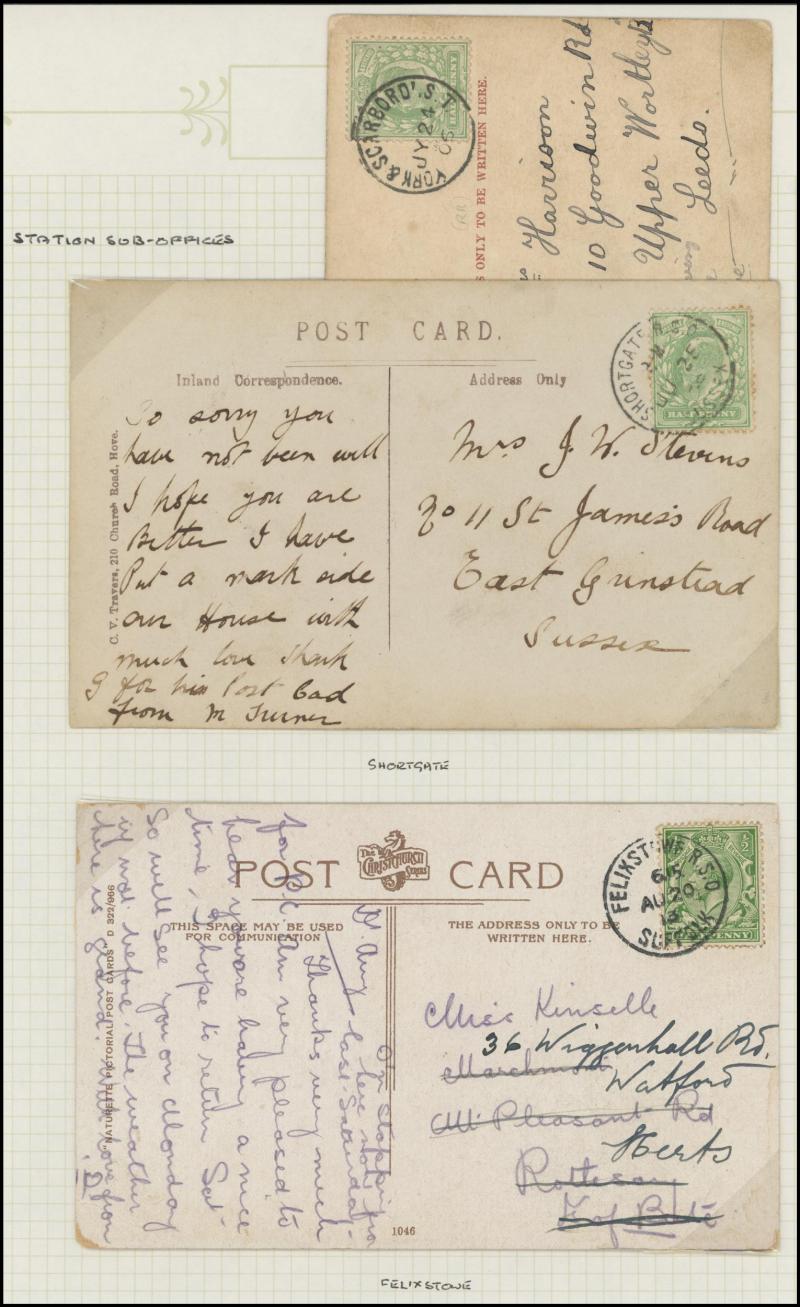 STATION SUB-OFFICES
HALFPENNY
YORK & SCARBORO'. S.T
JY 24
S ONLY TO BE WRITTEN HERE.
Harrison
10 Goodwin Rd
Upper Wortley
Leeds.
POST CARD.
Inland Correspondence.
Address Only
C. V. Travers, 210 Church Road, Hove.
So sorry you
have not been well
I hope you are
Better I have
Put a mark side
our House with
much love Thank
G for his Post Cad
from M Turner
SHORTGATE R.S.O
SUSSEX
HALFPENNY
Mrs J. W. Stevens
No 11 St James's Road
East Grinstead
Sussex
SHORTGATE
POST CARD
The CHRISTCHURCH Series
THIS SPACE MAY BE USED
FOR COMMUNICATION
THE ADDRESS ONLY TO BE
WRITTEN HERE.
"NATURETTE" PICTORIAL POST CARDS D 322/966
1046
FELIXSTOWE R.S.O
AU 20
13
SUFFOLK
1/2
Miss Kinselle
36 Wiggenhall Rd.
Marchmont
Watford
Mt Pleasant Rd
Herts
Rothesay
I of Bute
Am stopping
here now from
last Saturday
Thanks very much
for P.C. Am very pleased to
hear you are having a nice
time, I hope to return Sat-
So will See you on Monday
if not before. The weather
here is grand. With Love from
D.
FELIXSTOWE